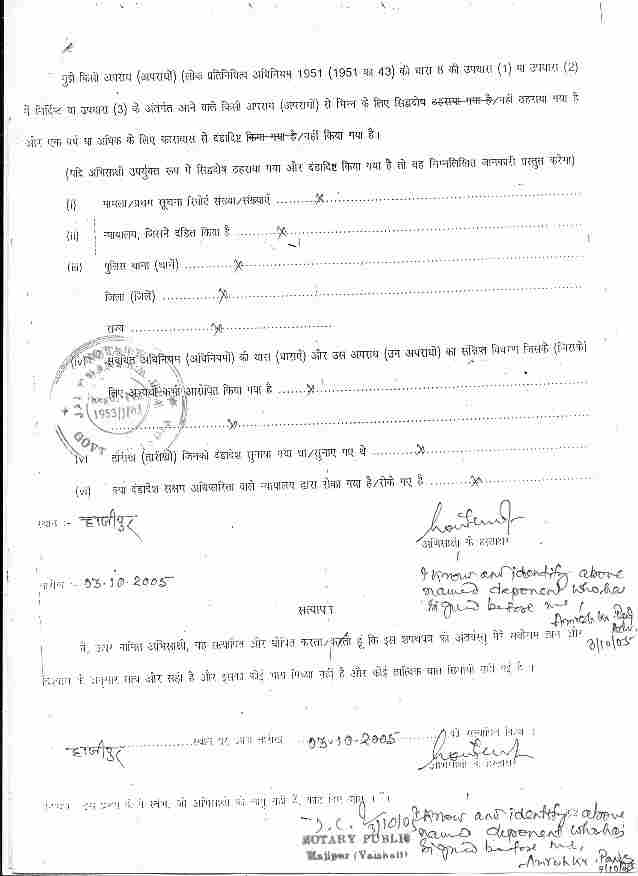 मुझे किसी अपराध (अपराधों) (लोक प्रतिनिधित्व अधिनियम 1951 (1951 का 43) की धारा 8 की उपधारा (1) या उपधारा (2)
में निर्दिष्ट या उपधारा (3) के अंतर्गत आने वाले किसी अपराध (अपराधों) से भिन्न के लिए सिद्धदोष ठहराया गया है/नहीं ठहराया गया है
और एक वर्ष या अधिक के लिए कारावास से दंडादिष्ट किया गया है/नहीं किया गया है।
(यदि अभिसाक्षी उपर्युक्त रूप में सिद्धदोष ठहराया गया और दंडादिष्ट किया गया है तो वह निम्नलिखित जानकारी प्रस्तुत करेगा)
(i) मामला/प्रथम सूचना रिपोर्ट संख्या/संख्याएँ ............x............
(ii) न्यायालय, जिसने दंडित किया है ............x............
(iii) पुलिस थाना (थानें) ............x............
जिला (जिलें) ............x............
राज्य ............x............
(iv) संबंधित अधिनियम (अधिनियमों) की धारा (धाराएं) और उस अपराध (उन अपराधों) का संक्षिप्त विवरण जिसके (जिसके)
लिए अभ्यर्थी को आरोपित किया गया है ............x............
............x............
1953
GOVT
(v) तारीख (तारीखों) जिनको दंडादेश सुनाया गया था/सुनाए गए थे ............x............
(vi) क्या दंडादेश सक्षम अधिकारिता वाले न्यायालय द्वारा रोका गया है/रोके गए है ............x............
स्थान :- हाजीपुर
अभिसाक्षी के हस्ताक्षर
तारीख :- 03-10-2005
I know and identify above
named deponent who has
signed before me,
3/10/05
सत्यापन
मैं, उपर नामित अभिसाक्षी, यह सत्यापित और घोषित करता/करती हूं कि इस शपथपत्र की अंतर्वस्तु मेरे सर्वोत्तम ज्ञान और
विश्वास के अनुसार सत्य और सही है और इसका कोई भाग मिथ्या नहीं है और कोई तात्विक बात छिपायी नहीं गई है।
हाजीपुर स्थान पर आज तारीख 03-10-2005 को सत्यापित किया।
अभिसाक्षी के हस्ताक्षर
I know and identify above
named deponent who has
signed before me,
3/10/05
NOTARY PUBLIC
Hajipur (Vaishali)